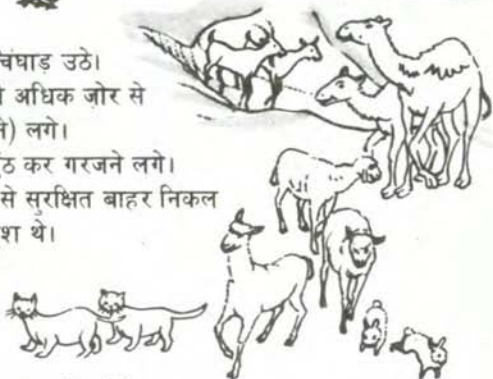 चिंघाड़ उठे।
अधिक ज़ोर से
लगे।
कर गरजने लगे।
से सुरक्षित बाहर निकल
थे।